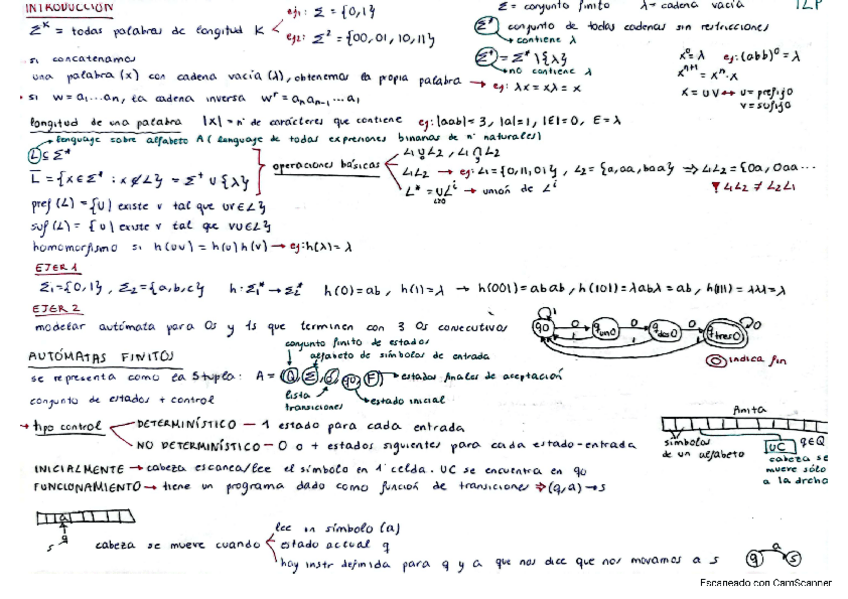 INTRODUCCIÓN
Σ = conjunto finito λ = cadena vacía TLP
Σᴷ = todas palabras de longitud K
ej₁: Σ = {0,1}
ej₂: Σ² = {00, 01, 10, 11}
Σ* conjunto de todas cadenas sin restricciones
contiene λ
Σ⁺ = Σ* \ {λ}
no contiene λ
x⁰ = λ ej: (abb)⁰ = λ
xⁿ⁺¹ = xⁿ · x
x = uv ↔ u = prefijo
v = sufijo
si concatenamos
una palabra (x) con cadena vacía (λ), obtenemos la propia palabra → ej: λx = xλ = x
• si w = a₁...aₙ, la cadena inversa wʳ = aₙ aₙ₋₁ ... a₁
longitud de una palabra |x| = nº de carácteres que contiene ej: |aab| = 3, |a| = 1, |E| = 0, E = λ
lenguaje sobre alfabeto A (lenguaje de todas expresiones binarias de nº naturales)
L ⊆ Σ*
L̅ = {x ∈ Σ* : x ∉ L} = Σ⁺ ∪ {λ}
pref (L) = {u | existe v tal que uv ∈ L}
suf (L) = {u | existe v tal que vu ∈ L}
operaciones básicas
L₁ ∪ L₂, L₁ ∩ L₂
L₁L₂ → ej: L₁ = {0, 11, 01}, L₂ = {a, aa, baa} ⇒ L₁L₂ = {0a, 0aa...
L* = ∪Lⁱ → unión de Lⁱ
i≥0
L₁L₂ ≠ L₂L₁
homomorfismo si h(uv) = h(u)h(v) → ej: h(λ) = λ
EJER 1
Σ₁ = {0,1}, Σ₂ = {a,b,c} h: Σ₁* → Σ₂* h(0) = ab, h(1) = λ → h(001) = abab, h(101) = λabλ = ab, h(111) = λλλ = λ
EJER 2
modelar autómata para 0s y 1s que terminen con 3 0s consecutivos
1
q0 0 q uno0 0 q dos0 0 q tres0 0
1 1 1
indica fin
AUTÓMATAS FINITOS
conjunto finito de estados
alfabeto de símbolos de entrada
se representa como la 5tupla: A = (Q, Σ, δ, q0, F) → estados finales de aceptación
lista transiciones
estado inicial
conjunto de estados + control
→ tipo control
DETERMINÍSTICO — 1 estado para cada entrada
NO DETERMINÍSTICO — 0 o + estados siguientes para cada estado-entrada
finita
símbolos
de un alfabeto
UC q ∈ Q
cabeza se
mueve sólo
a la drcha
INICIALMENTE → cabeza escanea/lee el símbolo en 1ª celda. UC se encuentra en q0
FUNCIONAMIENTO → tiene un programa dado como función de transiciones ⇒ (q,a) → s
a
s q
cabeza se mueve cuando
lee un símbolo (a)
estado actual q
hay instr definida para q y a que nos dice que nos movamos a s
q a s
Escaneado con CamScanner